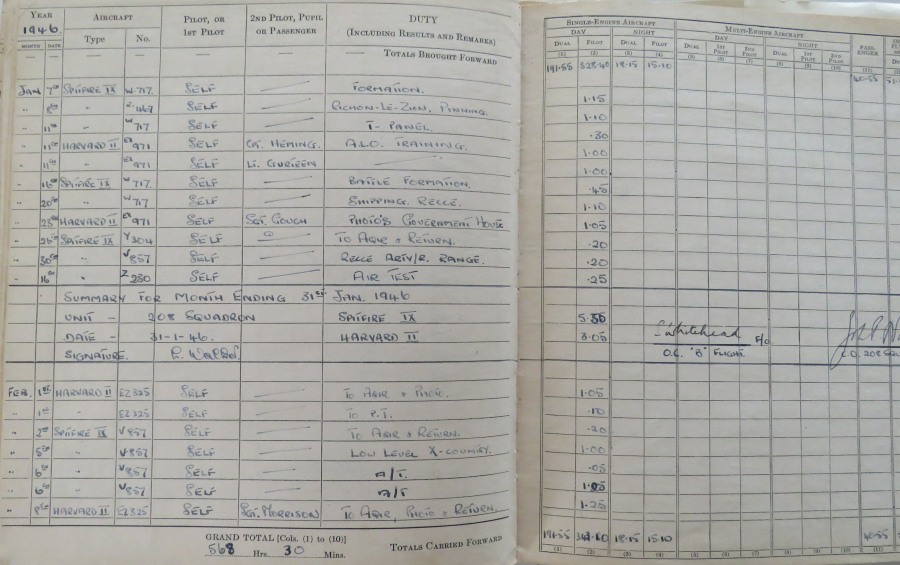 YEAR AIRCRAFT PILOT, OR 2ND PILOT, PUPIL DUTY SINGLE-ENGINE AIRCRAFT MULTI-ENGINE AIRCRAFT
1946. 1ST PILOT OR PASSENGER (INCLUDING RESULTS AND REMARKS) DAY NIGHT DAY NIGHT PASS-ENGER
MONTH DATE Type No. DUAL PILOT DUAL PILOT DUAL 1ST PILOT 2ND PILOT DUAL 1ST PILOT 2ND PILOT
(1) (2) (3) (4) (5) (6) (7) (8) (9) (10) (11)
— — — — — — TOTALS BROUGHT FORWARD 191.55 328.40 18.15 15.10 40.55
JAN 7TH SPITFIRE IX W 717. SELF — FORMATION. 1.15
" 8TH " 467 SELF — RICHON-LE-ZION. PINNING. 1.10
" 11TH " W 717 SELF — T- PANEL. .30
" 11TH HARVARD II EX 971 SELF HEMING. A.L.O. TRAINING. 1.00
" 11TH " EX 971 SELF LT. — 1.00
" 16TH SPITFIRE IX W 717. SELF — BATTLE FORMATION. .45
" 20TH " W 717 SELF — SHIPPING. RECCE. 1.10
" 25TH HARVARD II EX 971 SELF SGT. GOUCH PHOTO'S GOVERNMENT HOUSE 1.05
" SPITFIRE IX Y 304 SELF — TO AQIR & RETURN. .20
" 30TH " V 857 SELF — RECCE ARTY/R. RANGE. .20
" 16TH " Z 280 SELF — AIR TEST .25
SUMMARY FOR MONTH ENDING 31ST JAN. 1946
UNIT — 208 SQUADRON SPITFIRE IX 5.55
DATE — 31-1-46. HARVARD II 3.05 S Whitehead F/O
SIGNATURE. O.C. "B" FLIGHT C.O. 208
FEB. 1ST HARVARD II EZ325 SELF — TO AQIR & PHOTO. 1.05
" 1ST EZ325 SELF — TO P.T. .10
" 2ND SPITFIRE IX V 857 SELF — TO AQIR & RETURN. .20
" 5TH " V 857 SELF — LOW LEVEL X-COUNTRY. 1.00
" 6TH " V 857 SELF — A/T. .05
" 6TH " V 857 SELF — A/T
" 8TH HARVARD II EZ325 SELF SGT. MORRISON TO AQIR, PHOTO & RETURN. 1.25
GRAND TOTAL [Cols. (1) to (10)] TOTALS CARRIED FORWARD 191.55 18.15 15.10 40.55
568 Hrs. 30 Mins. (1) (2) (3) (4) (5) (6) (7) (8) (9) (10) (11)